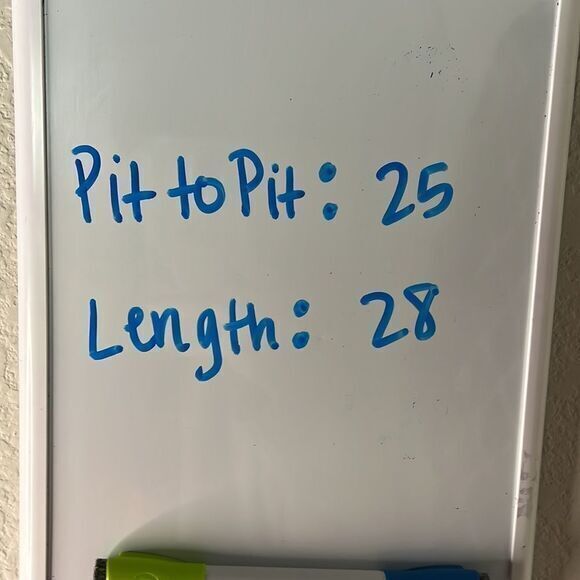 Pit to Pit: 25
Length: 28